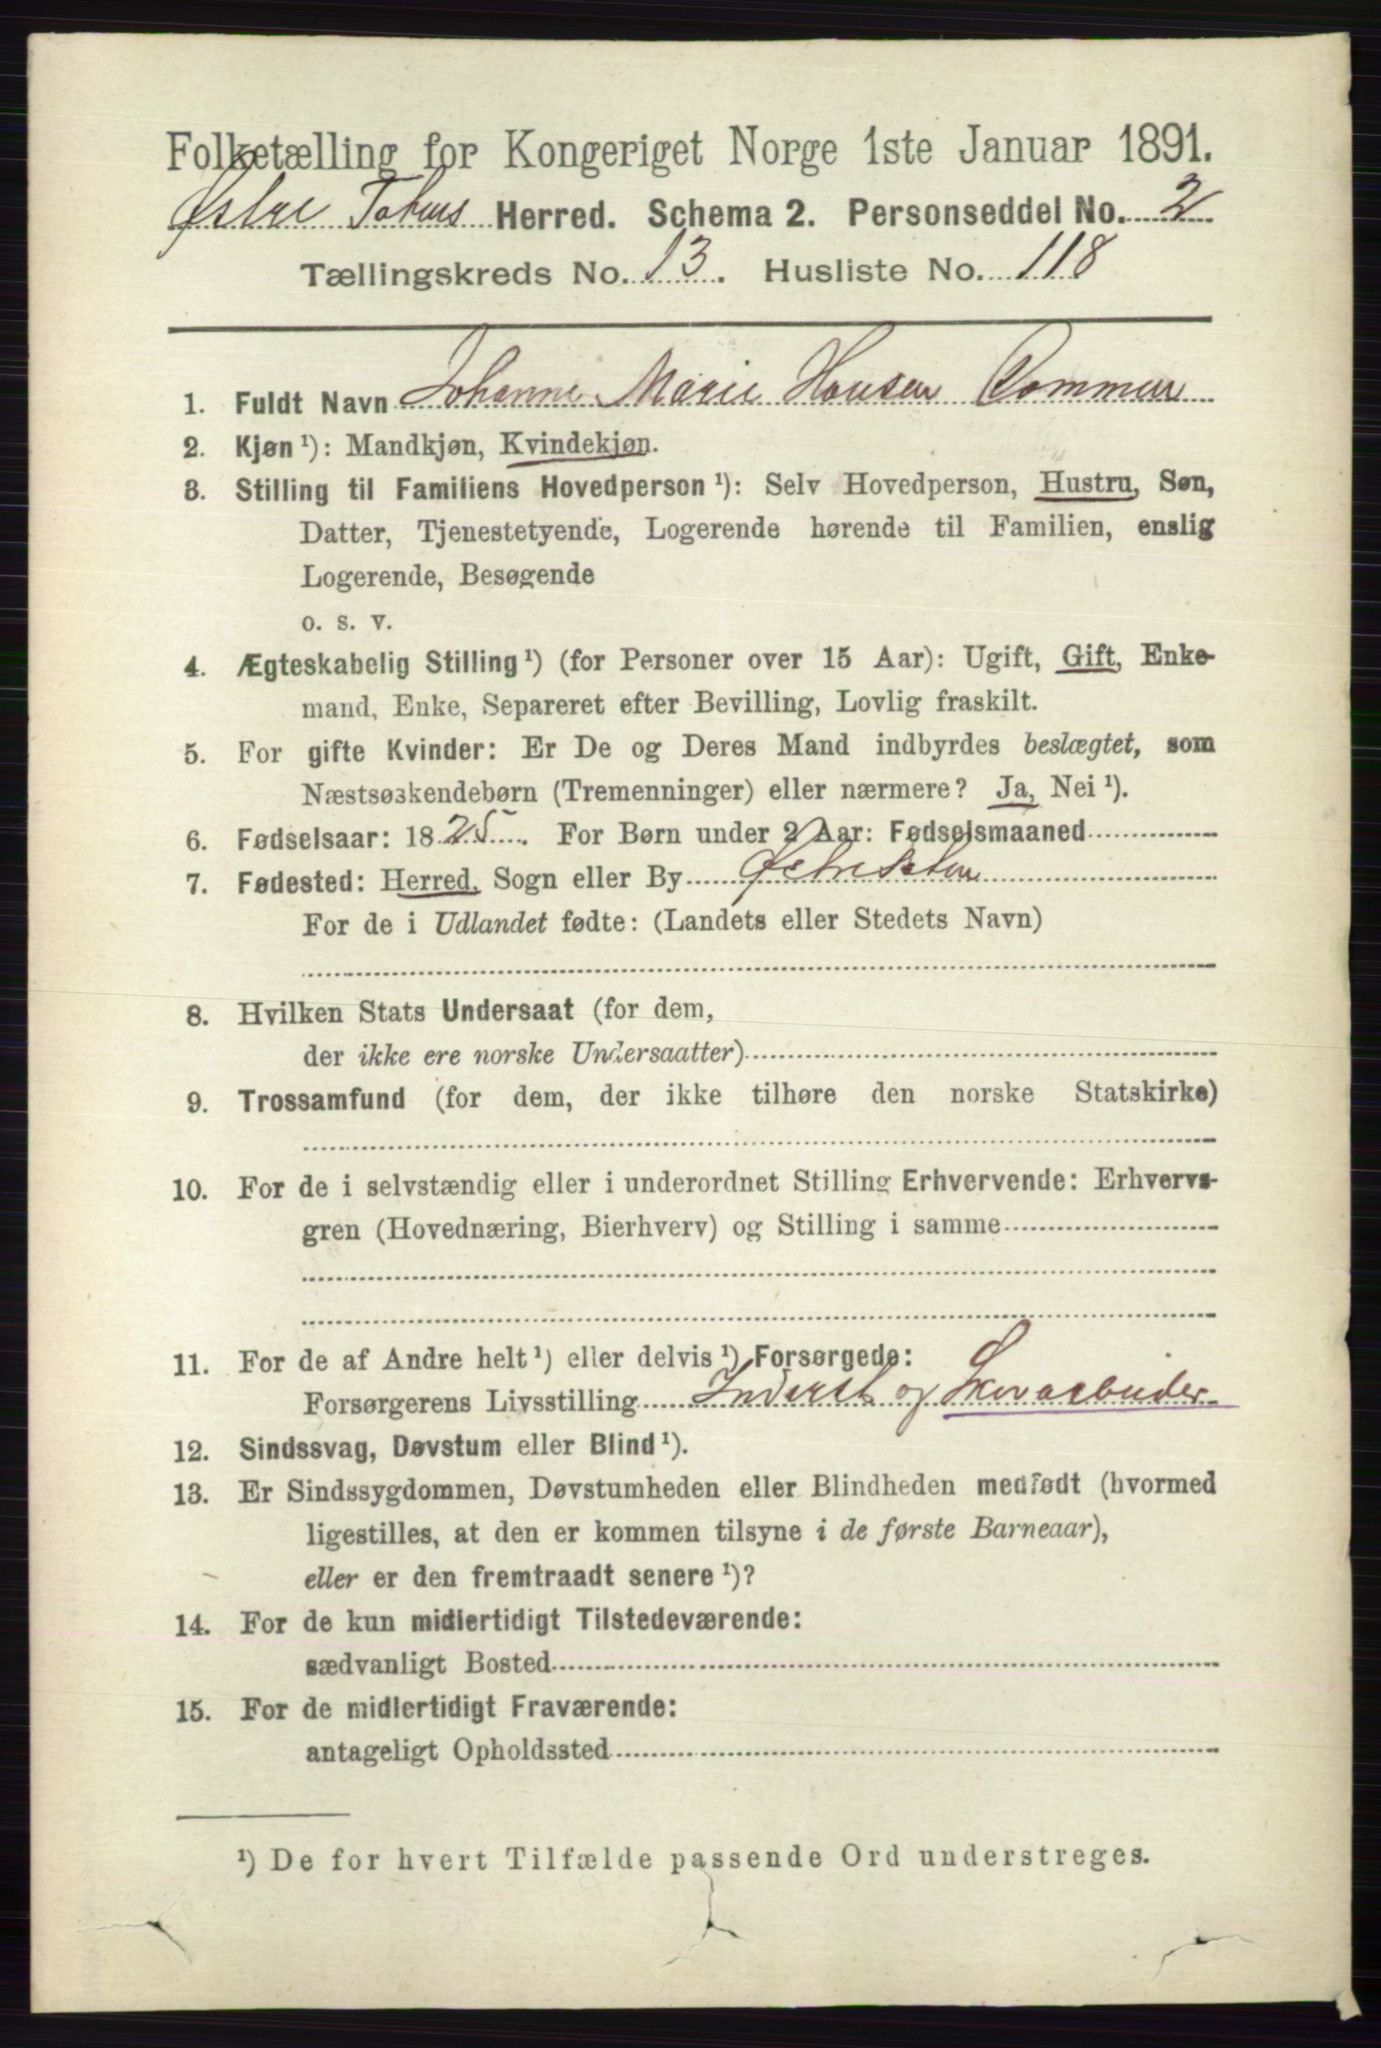 Folketælling for Kongeriget Norge 1ste Januar 1891.
Østre Totens Herred. Schema 2. Personseddel No. 2
Tællingskreds No. 13. Husliste No. 118
1. Fuldt Navn Johanne Marie Hansen
2. Kjøn ¹): Mandkjøn, Kvindekjøn.
3. Stilling til Familiens Hovedperson ¹): Selv Hovedperson, Hustru, Søn,
Datter, Tjenestetyende, Logerende hørende til Familien, enslig
Logerende, Besøgende
o. s. v.
4. Ægteskabelig Stilling ¹) (for Personer over 15 Aar): Ugift, Gift, Enke-
mand, Enke, Separeret efter Bevilling, Lovlig fraskilt.
5. For gifte Kvinder: Er De og Deres Mand indbyrdes beslægtet, som
Næstsøskendebørn (Tremenninger) eller nærmere? Ja, Nei ¹).
6. Fødselsaar: 1825. For Børn under 2 Aar: Fødselsmaaned
7. Fødested: Herred, Sogn eller By
For de i Udlandet fødte: (Landets eller Stedets Navn)
8. Hvilken Stats Undersaat (for dem,
der ikke ere norske Undersaatter)
9. Trossamfund (for dem, der ikke tilhøre den norske Statskirke)
10. For de i selvstændig eller i underordnet Stilling Erhvervende: Erhvervs-
gren (Hovednæring, Bierhverv) og Stilling i samme
11. For de af Andre helt ¹) eller delvis ¹) Forsørgede:
Forsørgerens Livsstilling Inderst og Skovarbeider
12. Sindssvag, Døvstum eller Blind ¹).
13. Er Sindssygdommen, Døvstumheden eller Blindheden medfødt (hvormed
ligestilles, at den er kommen tilsyne i de første Barneaar),
eller er den fremtraadt senere ¹)?
14. For de kun midlertidigt Tilstedeværende:
sædvanligt Bosted
15. For de midlertidigt Fraværende:
antageligt Opholdssted
¹) De for hvert Tilfælde passende Ord understreges.